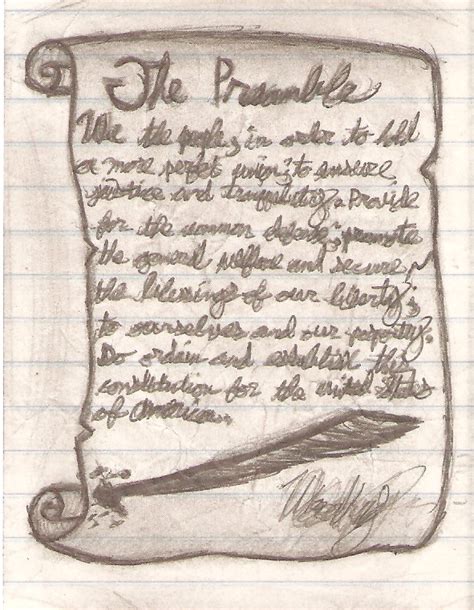 The Preamble
We the people, in order to hold
a more perfect union; to ensure
justice and tranquility. Provide
for the common defense; promote
the general welfare and secure
the blessings of our liberty;
to ourselves and our
Do ordain and establish this
constitution for the united states
of american.